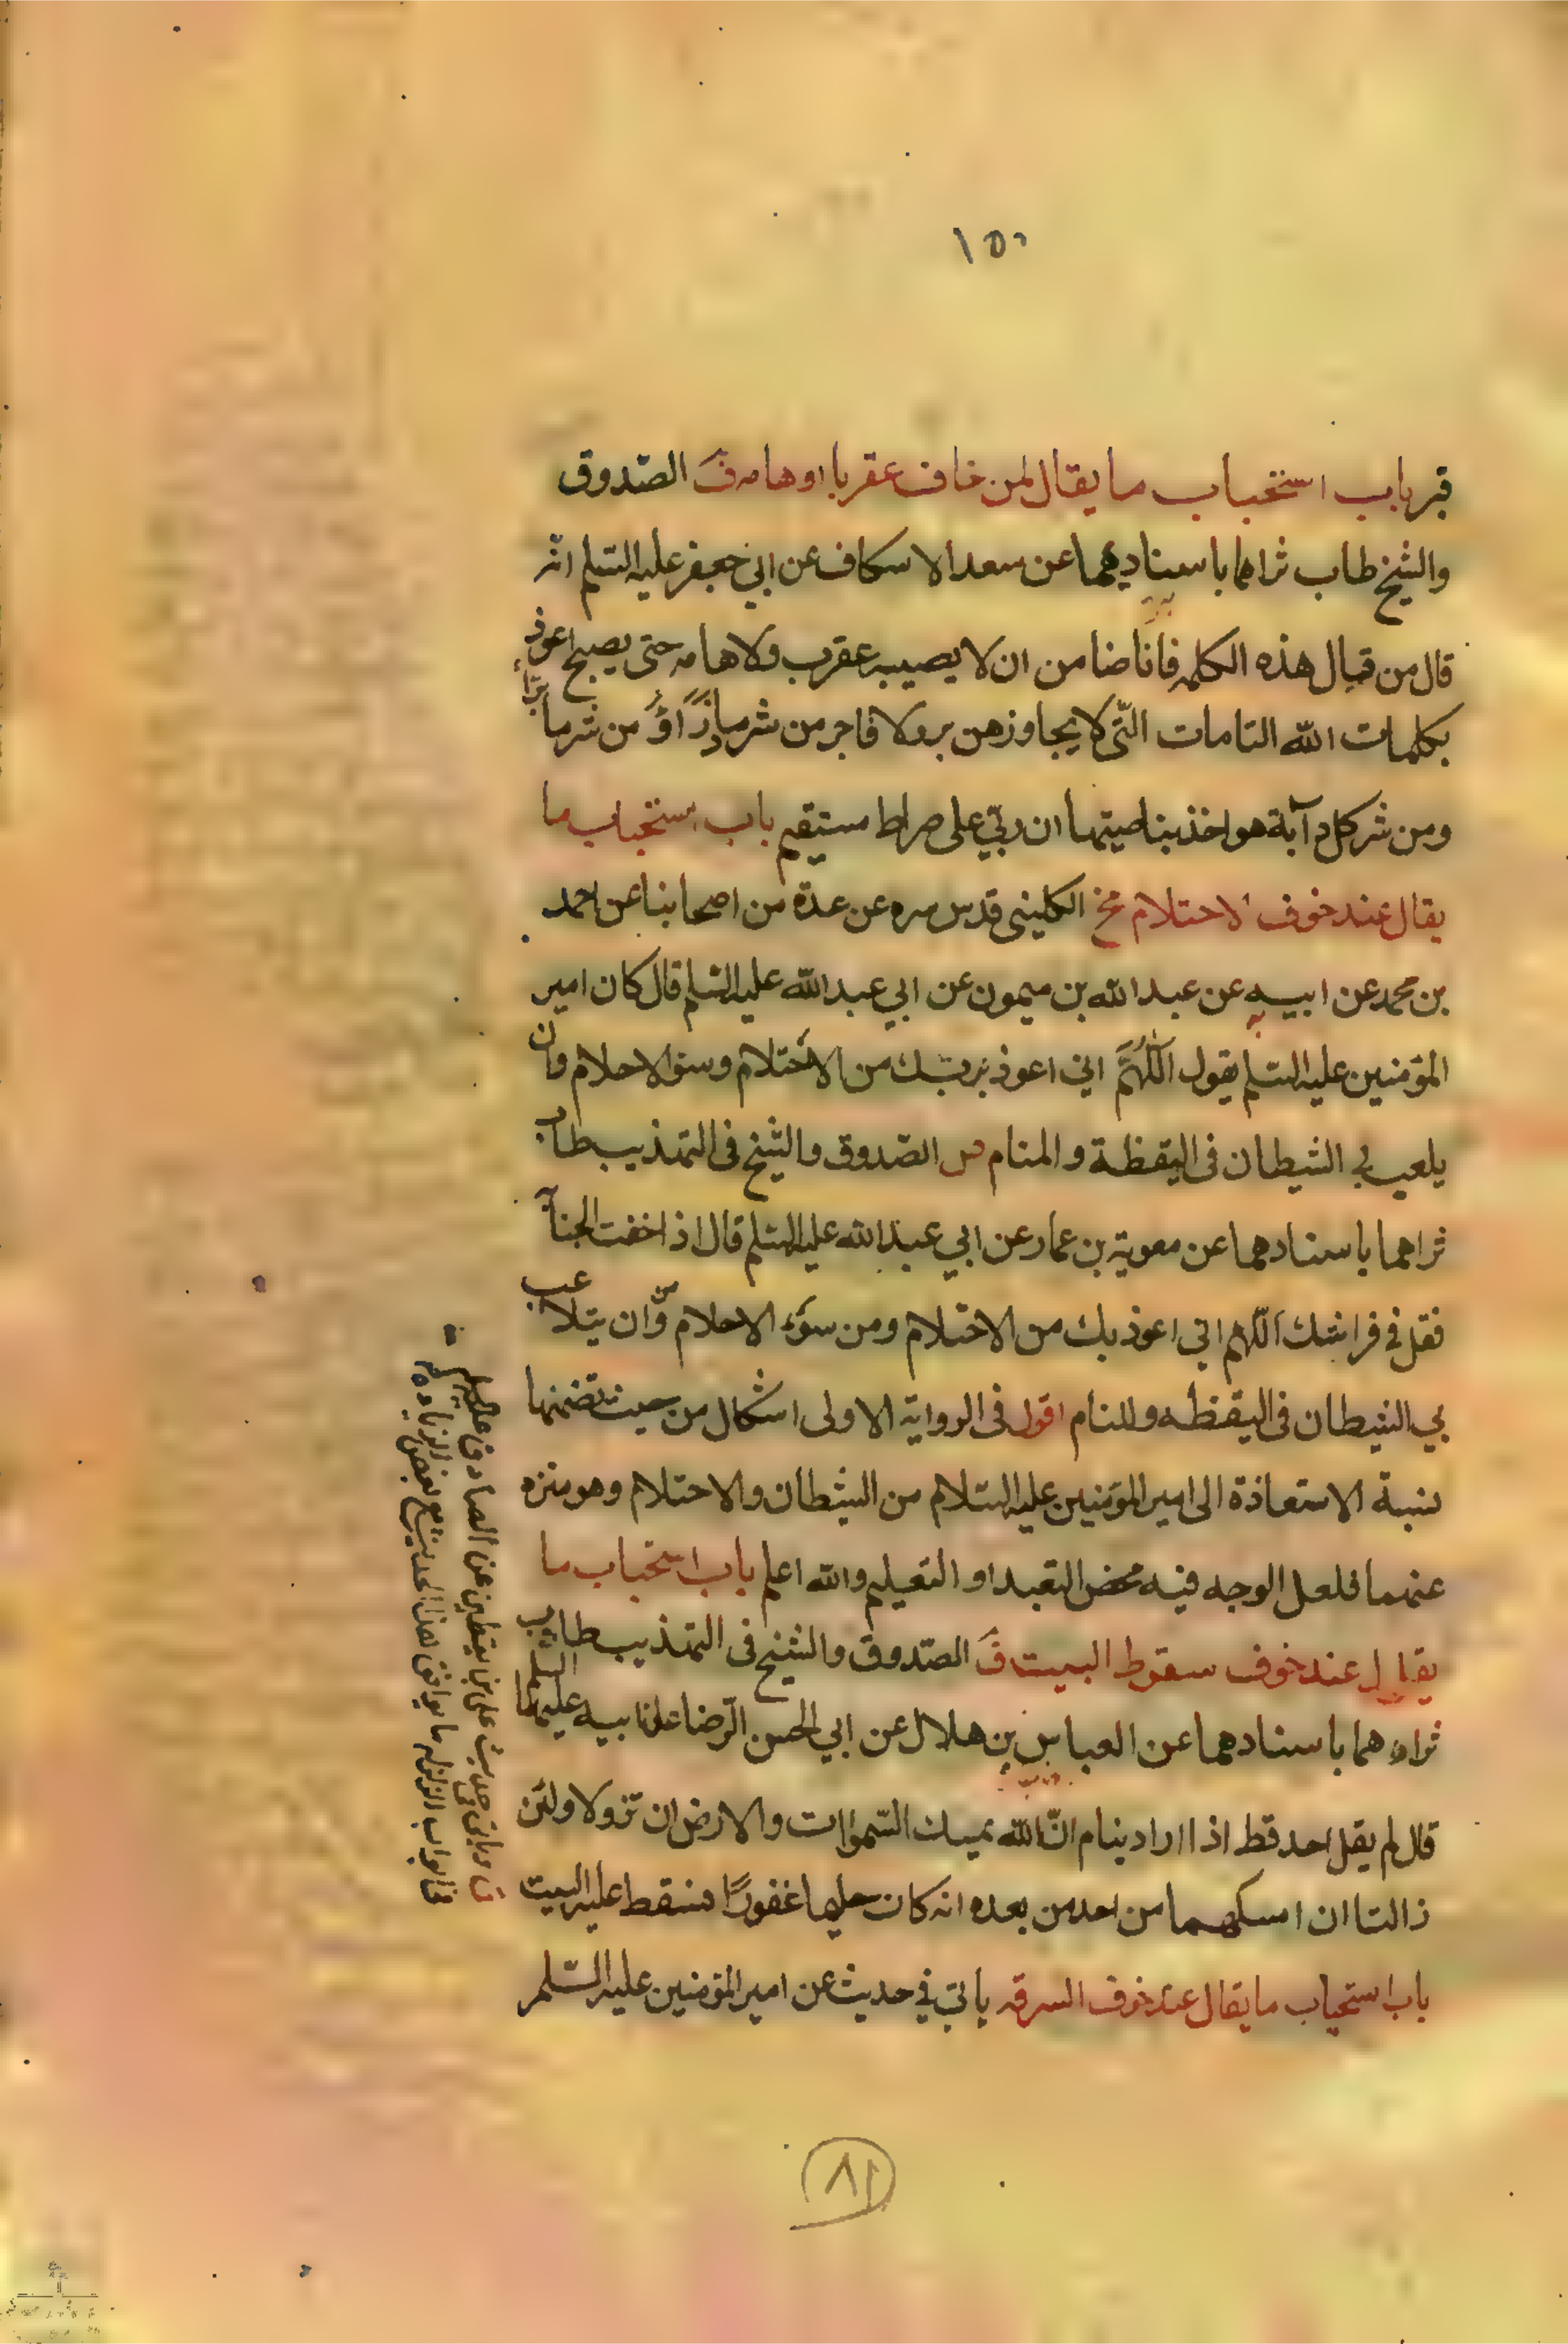 ١٥٠
قبر باب استحباب ما يقال لمن خاف عقربا او هامه ق الصّدوق
والشيخ طاب ثراهما باسناديهما عن سعد الاسكاف عن ابي جعفر عليه السّلم انّه
قال من قال هذه الكلمه فانا ضامن ان لا يصيبه عقرب ولا هامه حتى يصبح اعوذ
بكلمات الله التامات الّتى لا يجاوزهن بر ولا فاجر من شر ما ذرأ ومن شر ما برأ
ومن شر كل دآبة هو اخذ بناصيتها ان ربّي على صراط مستقيم باب استحباب ما
يقال عند خوف الاحتلام مخ الكليني قدس سره عن عدة من اصحابنا عن احمد
بن محمد عن ابيه عن عبد الله بن ميمون عن ابي عبد الله عليه السّلم قال كان امير
المؤمنين عليه السّلم يقول اللّهمّ اني اعوذ بك من الاحتلام وسوء الاحلام وان
يلعب بي الشيطان فى اليقظة والمنام الصّدوق والشّيخ فى التهذيب طاب
ثراهما باسنادهما عن معوية بن عمار عن ابي عبد الله عليه السّلم قال اذا خفت الجنابة
فقل في فراشك اللّهم انّي اعوذ بك من الاحتلام ومن سوء الاحلام وان يتلاعب
بي الشيطان فى اليقظه والمنام اقول فى الرواية الاولى اشكال من حيث تضمنها
نسبة الاستعاذة الى امير المؤمنين عليه السّلام من الشيطان والاحتلام وهو منزه
عنهما فلعل الوجه فيه محض التعبد او التعليم والله اعلم باب استحباب ما
يقال عند خوف سقوط البيت ق الصّدوق والشيخ فى التهذيب طاب
ثراهما باسنادهما عن العباس بن هلال عن ابي الحسن الرّضا عن ابيه عليهما السلم
قال لم يقل احد قط اذا اراد ينام انّ الله يمسك السّموات والارض ان تزولا ولئن
زالتا ان امسكهما من احد من بعده انه كان حليما غفورًا فسقط عليه البيت
باب استحباب ما يقال عند خوف السرقه ياتي في حديث عن امير المؤمنين عليه السّلم
ق وياتي في حديث علي بن يقطين عن الصادق عليه السلم
في ابواب الزلزله ما يوافق هذا الحديث مع بعض الزياده
٨١